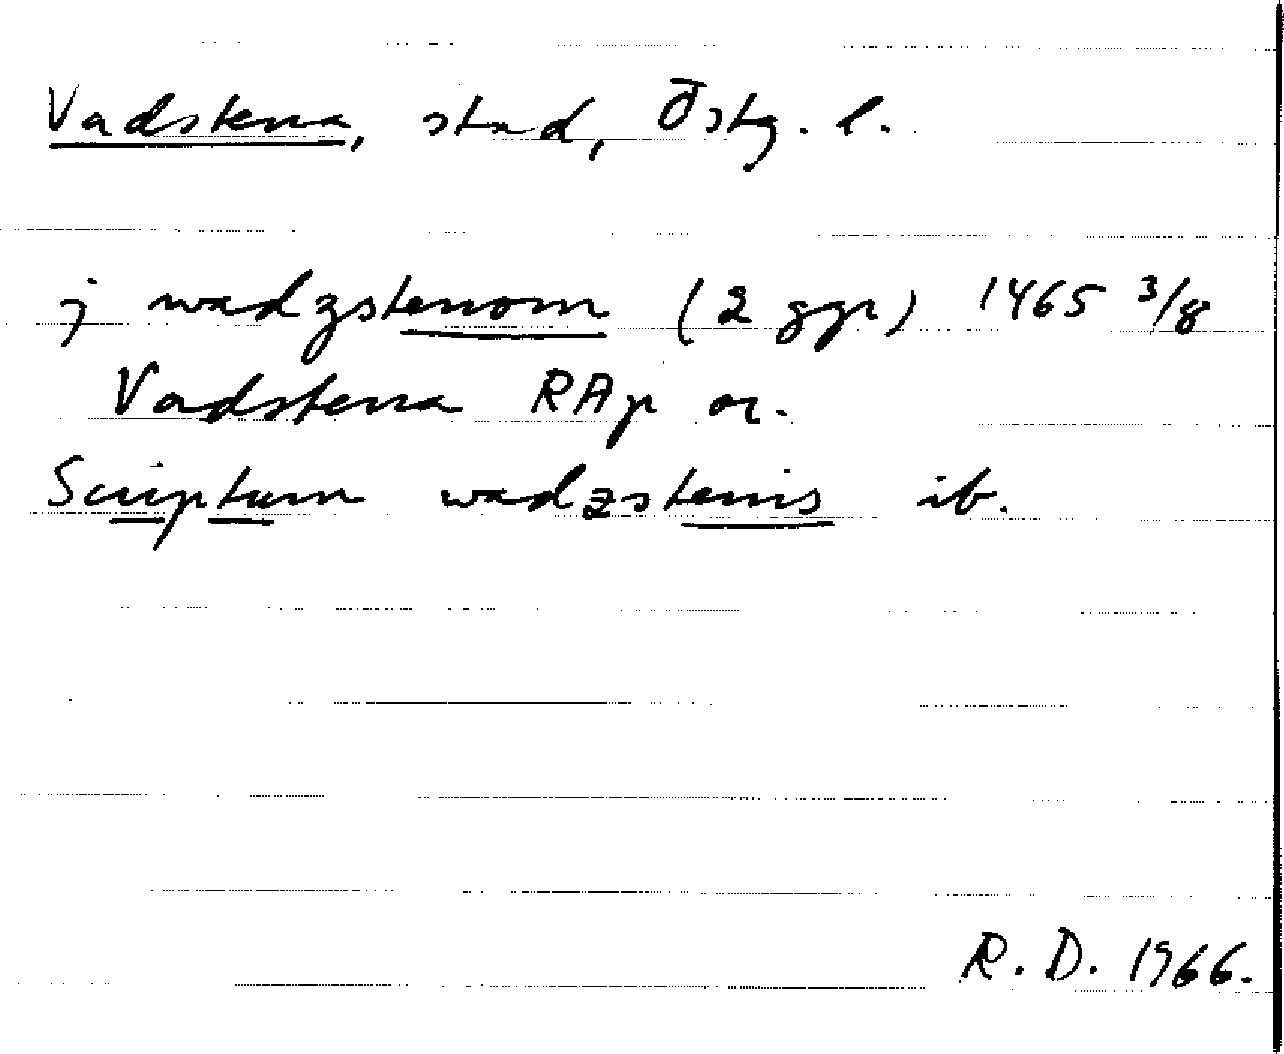 Vadstena, stad, Östg. l.
j wadzstenom (2 ggr) 1465 3/8
Vadstena RAp or.
Scriptum wadzstenis ib.
R. D. 1966.